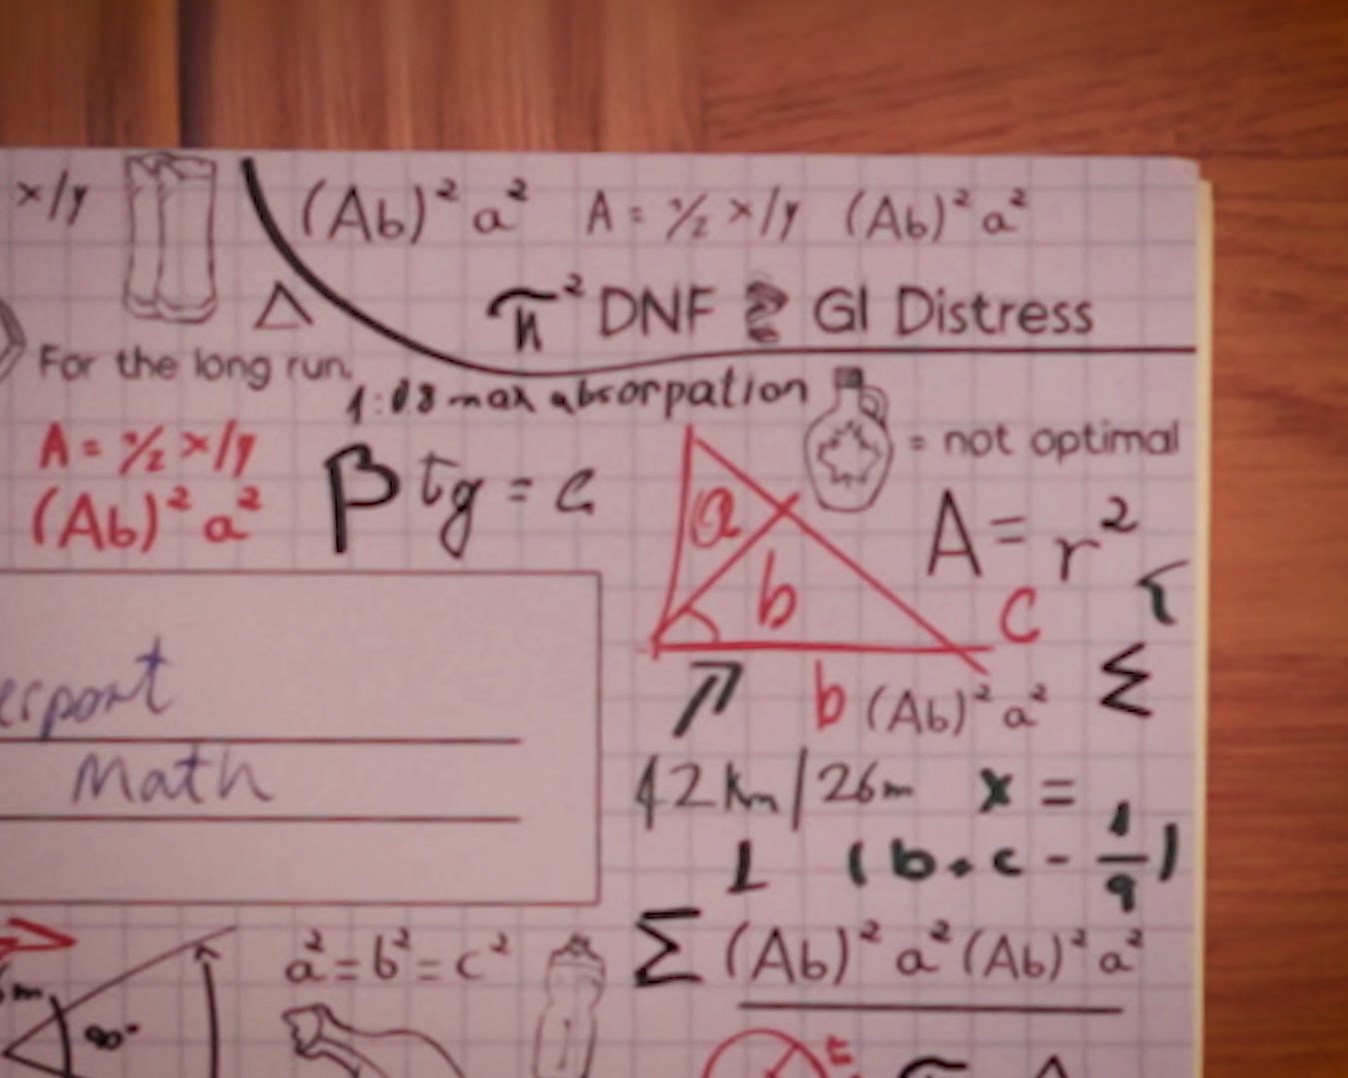 x/y (Ab)² a² A = ½ x/y (Ab)² a²
π² DNF GI Distress
Δ
For the long run.
1:08 max absorpation
= not optimal
A = ½ x/y
(Ab)² a²
β tg = c
a
b
c
A = r²
Σ
b (Ab)² a²
erport
Math
42 km/26m x =
1 (b · c - 1/9)
a² = b² = c²
Σ (Ab)² a² (Ab)² a²